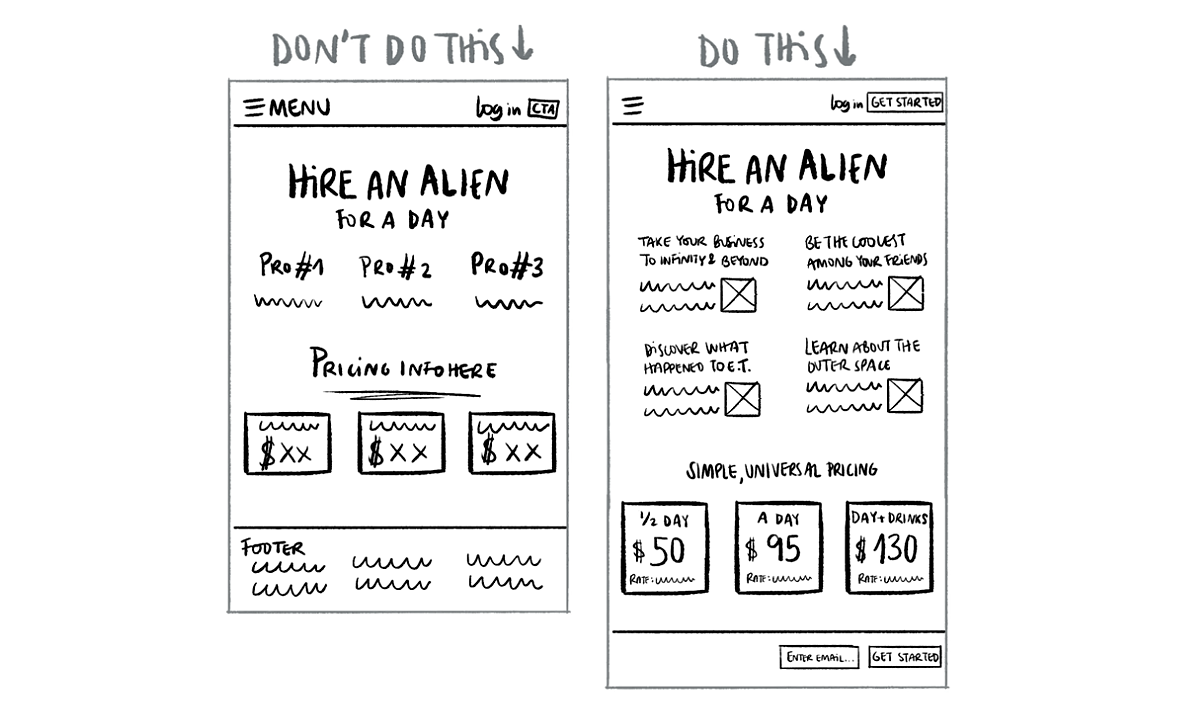 DON'T DO THIS↓
MENU
Log in
CTA
HIRE AN ALIEN
FOR A DAY
PRO#1
PRO#2
PRO#3
PRICING INFO HERE
$XX
$XX
$XX
FOOTER
DO THIS↓
Log in
GET STARTED
HIRE AN ALIEN
FOR A DAY
TAKE YOUR BUSINESS
TO INFINITY & BEYOND
BE THE COOLEST
AMONG YOUR FRIENDS
DISCOVER WHAT
HAPPENED TO E.T.
LEARN ABOUT THE
OUTER SPACE
SIMPLE, UNIVERSAL PRICING
1/2 DAY
$50
RATE:
A DAY
$95
RATE:
DAY+DRINKS
$130
RATE:
ENTER EMAIL...
GET STARTED